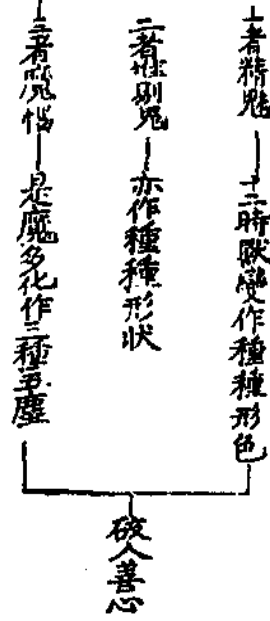 一者精魅 十二時獸變作種種形色
二者堆剔鬼 亦作種種形狀
三者魔惱 是魔多化作三種五塵
破人善心